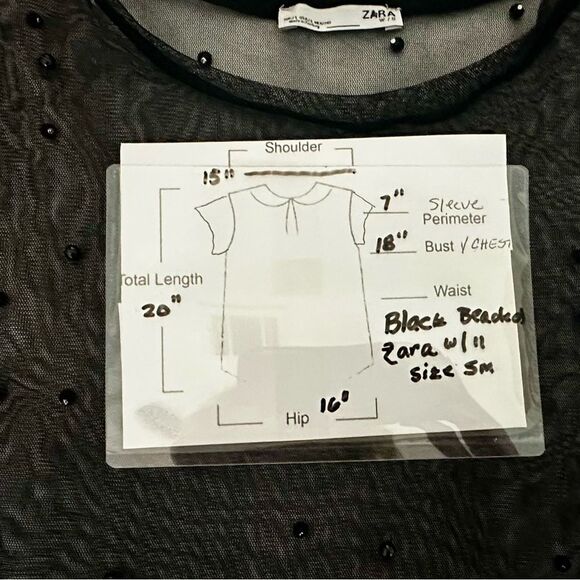 ZARA
W/B
Shoulder
15"
7" Sleeve
Perimeter
18" Bust / CHEST
Total Length
20"
Waist
Black Beaded
Zara w/11
Size Sm
Hip 16"